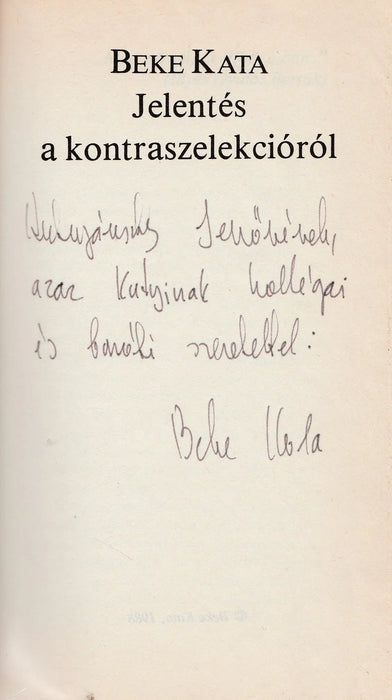 BEKE KATA
Jelentés
a kontraszelekcióról
Jenőnének,
azaz Kutyinak kollégai
és baráti szeretettel:
Beke Kata
© Beke Kata, 1988